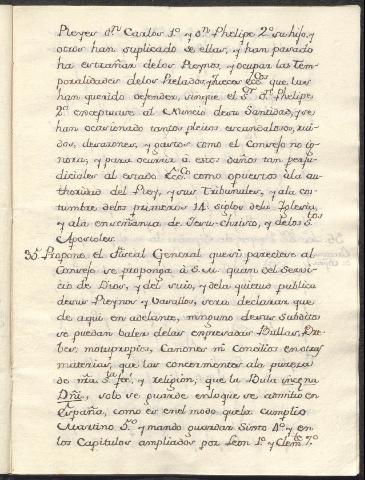 Reyes dn. Carlos 1º y dn. Phelipe 2º su hijo, y
otros han suplicado de ellas, y han pasado
ha estrañar de los Reynos, y ocupar las tem
poralidades de los Prelados, y Jueces ecc.cos que las
han querido defender, sinque el Sr. Dn. Phelipe
2º. exceptuase al Nuncio de su Santidad, y se
han ocasionado tantos pleitos escandalosos, rui-
dos, desazones, y gastos como el Consejo no ig-
nora; y para ocurrir a estos daños tan perju-
diciales al estado Ecc.co como opuestos ala au-
thoridad del Rey, y sus Tribunales, y ala cos-
tumbre delos primeros 14. siglos dela Iglesia,
y ala enseñanza de Jesu-Christo, y delos S.tos
Apostoles.
35. Propone el Fiscal General que si pareciese al
Consejo se proponga à S. M. quan del servi-
cio de Dios, y del suio, y dela quietud publica
de sus Reynos y Vasallos, sera declarar que
de aqui en adelante, ninguno de sus Subditos
se puedan baler delas expresadas Bullas, Bre-
bes, motuproprios, Canones ni Concilios en otras
materias, que las concernientes ala pureza
de nra. S.ta feè, y religion, que la Bula incena
Dñi, solo se guarde en lo que se admitio en
España, como es en el modo que la cumplio
Martino 5.to y mando guardar Sixto 4º. y en
los Capitulos ampliados por Leon 1º. y Clem.te 7º.